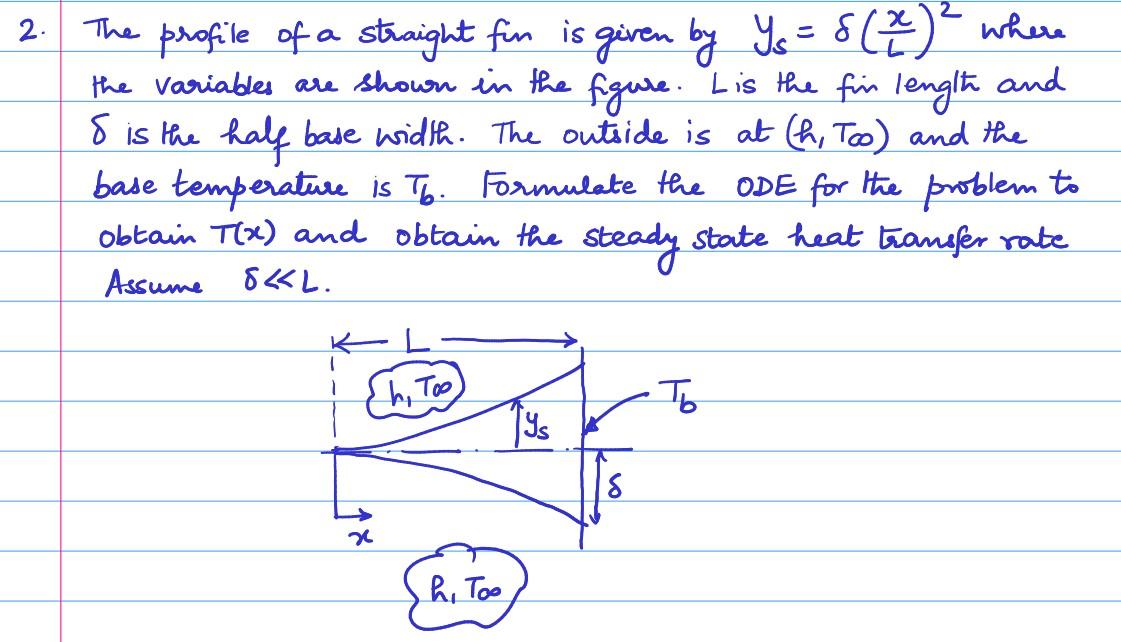 2. The profile of a straight fin is given by yₛ = δ(x/L)² where
the variables are shown in the figure. L is the fin length and
δ is the half base width. The outside is at (h, T∞) and the
base temperature is T_b. Formulate the ODE for the problem to
obtain T(x) and obtain the steady state heat transfer rate
Assume δ<<L.
L
h, T∞
T_b
yₛ
δ
x
h, T∞